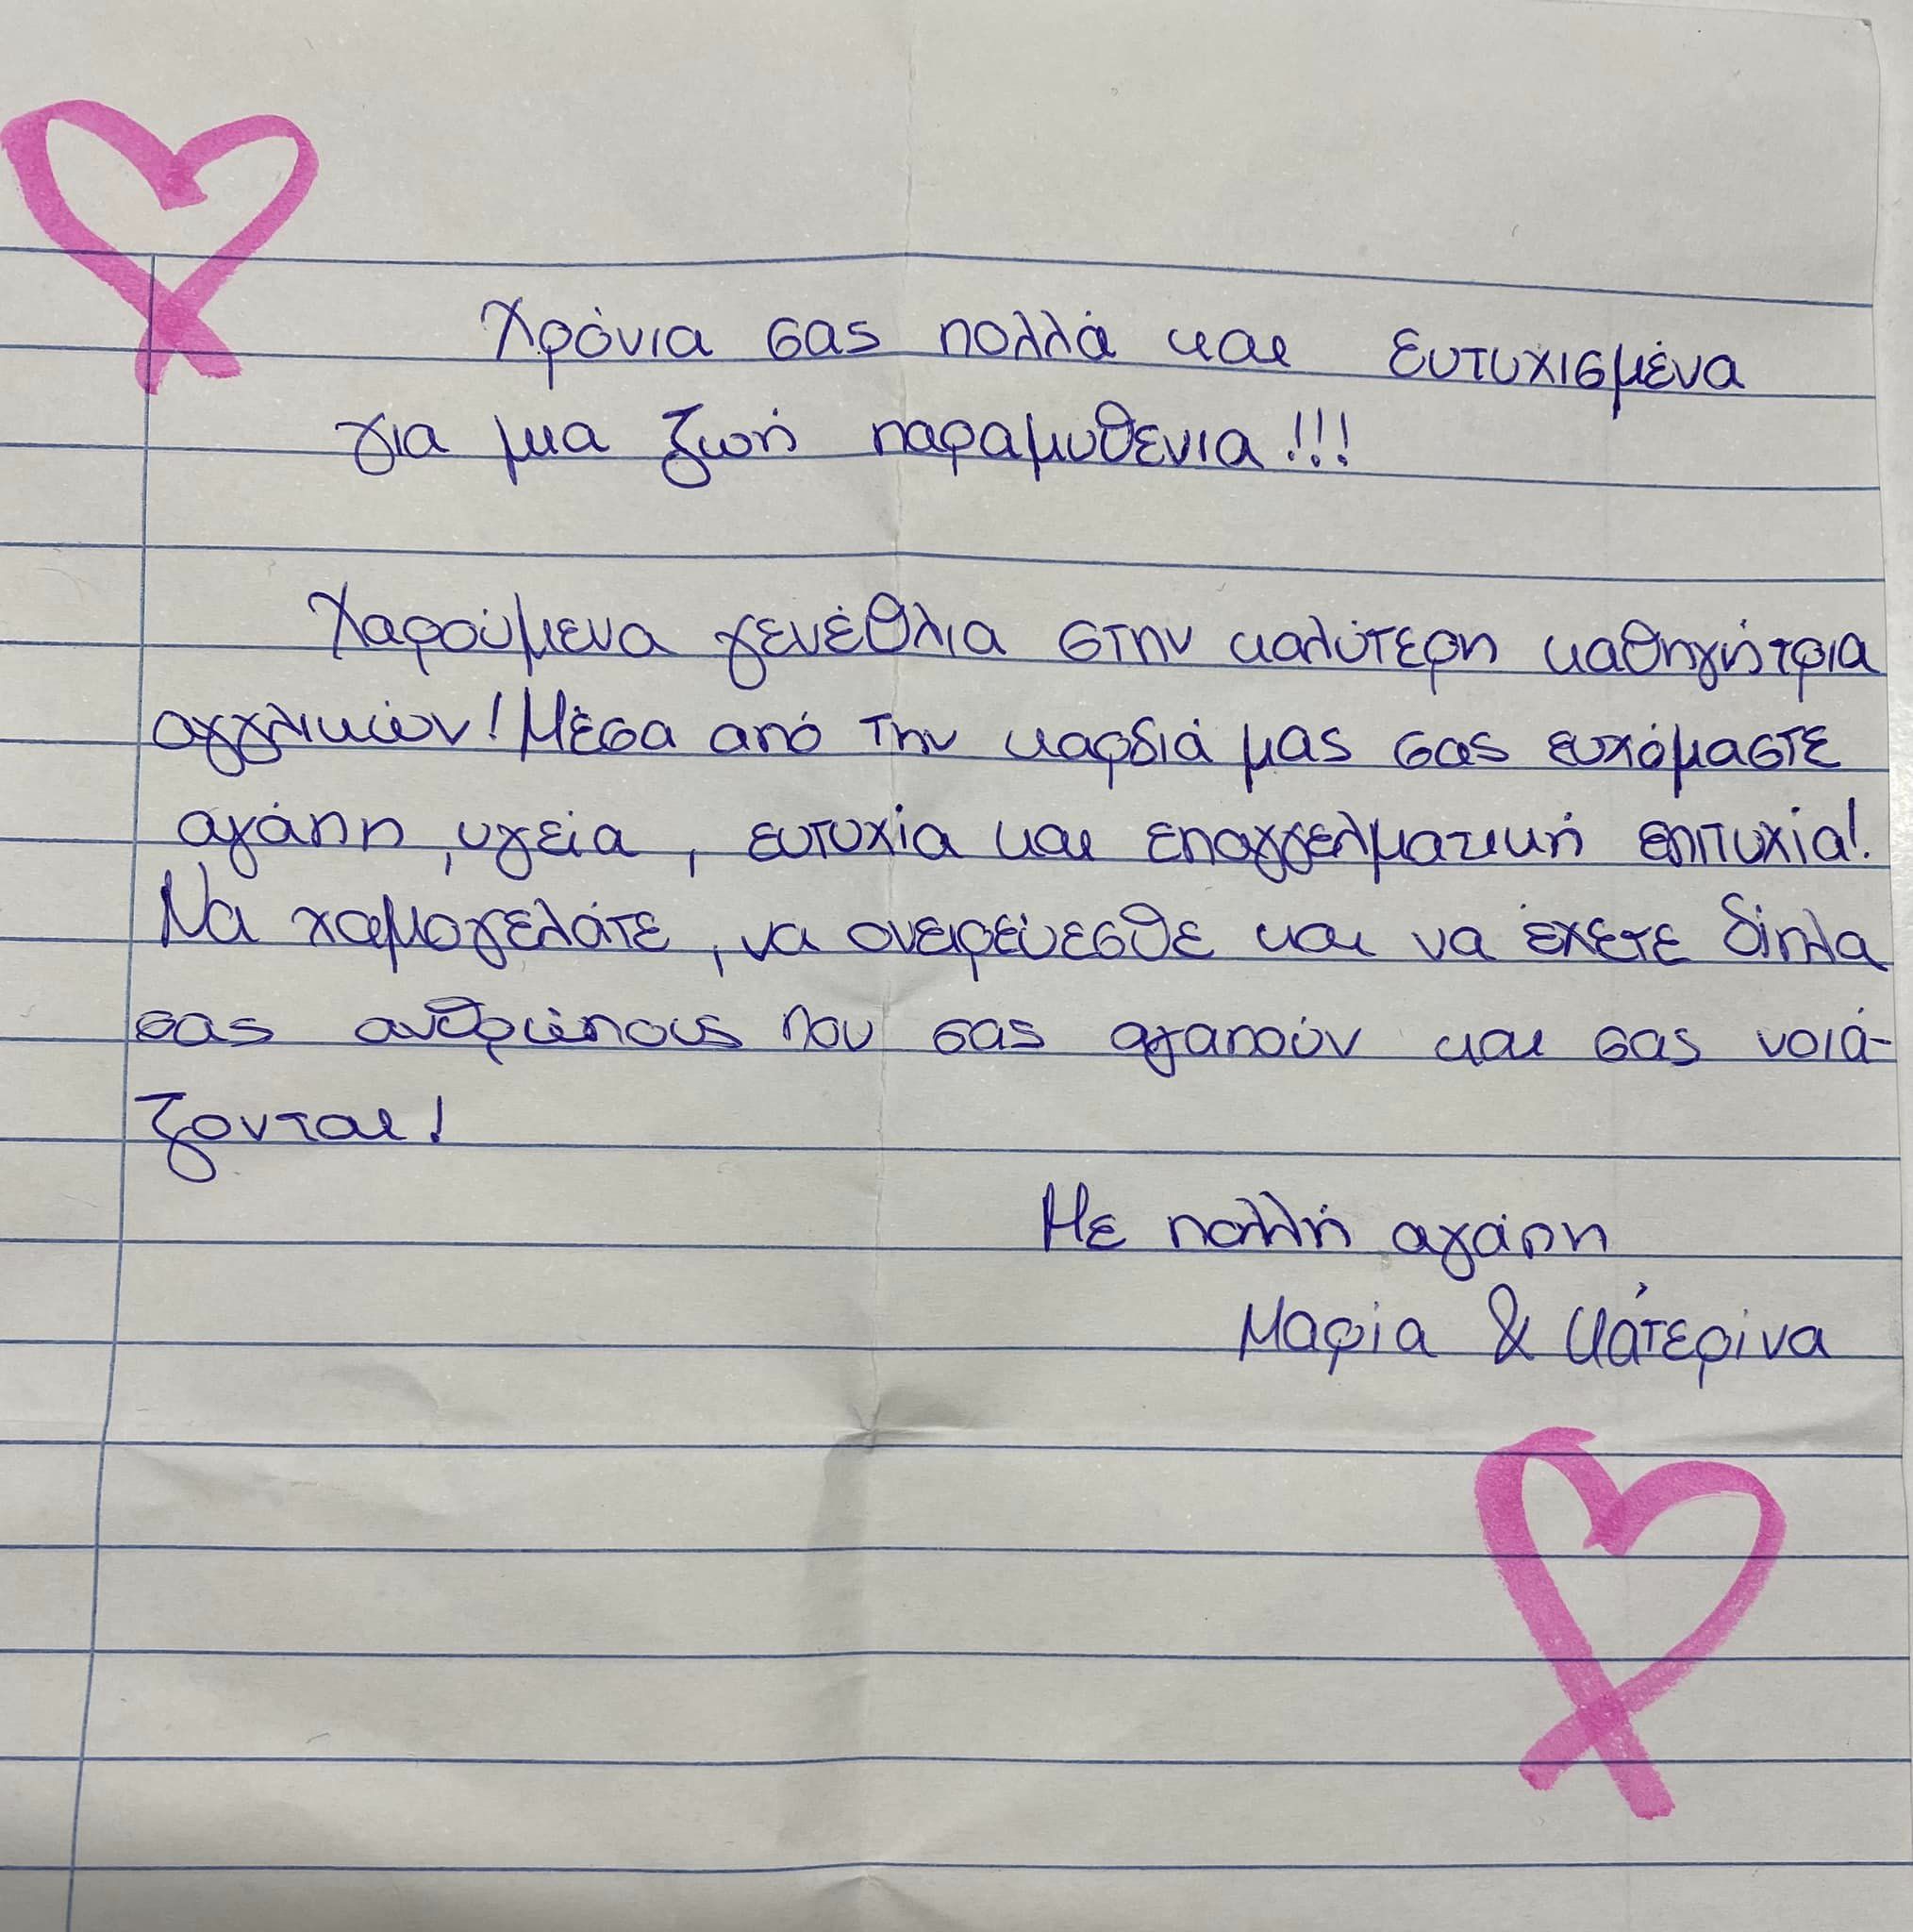 Χρόνια σας πολλά και ευτυχισμένα
για μια ζωή παραμυθενια!!!
Χαρούμενα γενέθλια στην καλύτερη καθηγήτρια
αγγλικών! Μέσα από την καρδιά μας σας ευχόμαστε
αγάπη, υγεία, ευτυχία και επαγγελματική επιτυχία!
Να χαμογελάτε, να ονειρεύεσθε και να έχετε δίπλα
σας ανθρώπους που σας αγαπούν και σας νοιά-
ζονται!
Με πολλή αγάπη
Μαρία & Κάτερίνα